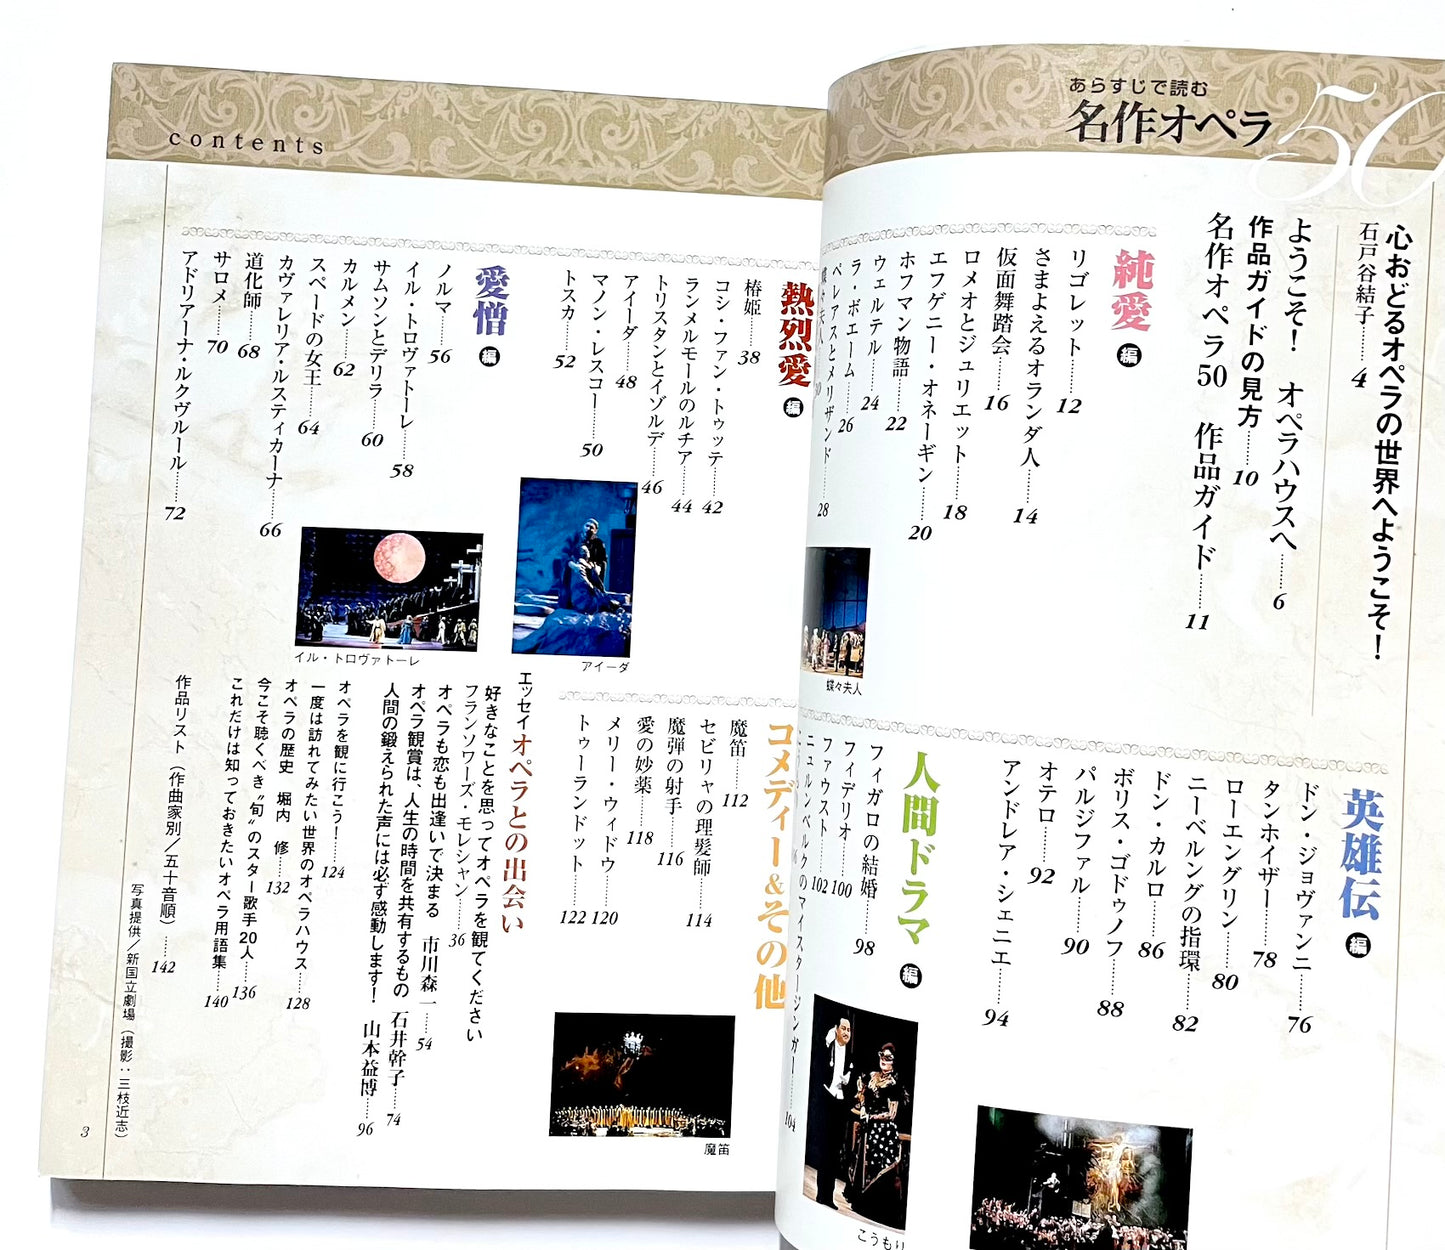 あらすじで読む
名作オペラ50
心おどるオペラの世界へようこそ！
石戸谷結子……4
ようこそ！　オペラハウスへ……6
作品ガイドの見方……10
名作オペラ50　作品ガイド……11
純愛編
リゴレット……12
さまよえるオランダ人……14
仮面舞踏会……16
ロメオとジュリエット……18
エフゲニー・オネーギン……20
ホフマン物語……22
ウェルテル……24
ラ・ボエーム……26
ペレアスとメリザンド……28
蝶々夫人
蝶々夫人
英雄伝編
ドン・ジョヴァンニ……76
タンホイザー……78
ローエングリン……80
ニーベルングの指環……82
ドン・カルロ……86
ボリス・ゴドゥノフ……88
パルジファル……90
オテロ……92
アンドレア・シェニエ……94
人間ドラマ編
フィガロの結婚……98
フィデリオ……100
ファウスト……102
ニュルンベルクのマイスタージンガー……104
こうもり
contents
熱烈愛編
椿姫……38
コシ・ファン・トゥッテ……42
ランメルモールのルチア……44
トリスタンとイゾルデ……46
アイーダ……48
マノン・レスコー……50
トスカ……52
愛憎編
ノルマ……56
イル・トロヴァトーレ……58
サムソンとデリラ……60
カルメン……62
スペードの女王……64
カヴァレリア・ルスティカーナ……66
道化師……68
サロメ……70
アドリアーナ・ルクヴルール……72
アイーダ
イル・トロヴァトーレ
コメディー&その他
魔笛……112
セビリャの理髪師……114
魔弾の射手……116
愛の妙薬……118
メリー・ウィドウ……120
トゥーランドット……122
魔笛
エッセイ オペラとの出会い
好きなことを思ってオペラを観てください
フランソワーズ・モレシャン……36
オペラも恋も出逢いで決まる　市川森一……54
オペラ観賞は、人生の時間を共有するもの　石井幹子……74
人間の鍛えられた声には必ず感動します！　山本益博……96
オペラを観に行こう！……124
一度は訪れてみたい世界のオペラハウス……128
オペラの歴史　堀内　修……132
今こそ聴くべき“旬”のスター歌手20人……136
これだけは知っておきたいオペラ用語集……140
作品リスト（作曲家別／五十音順）……142
写真提供／新国立劇場（撮影：三枝近志）
3